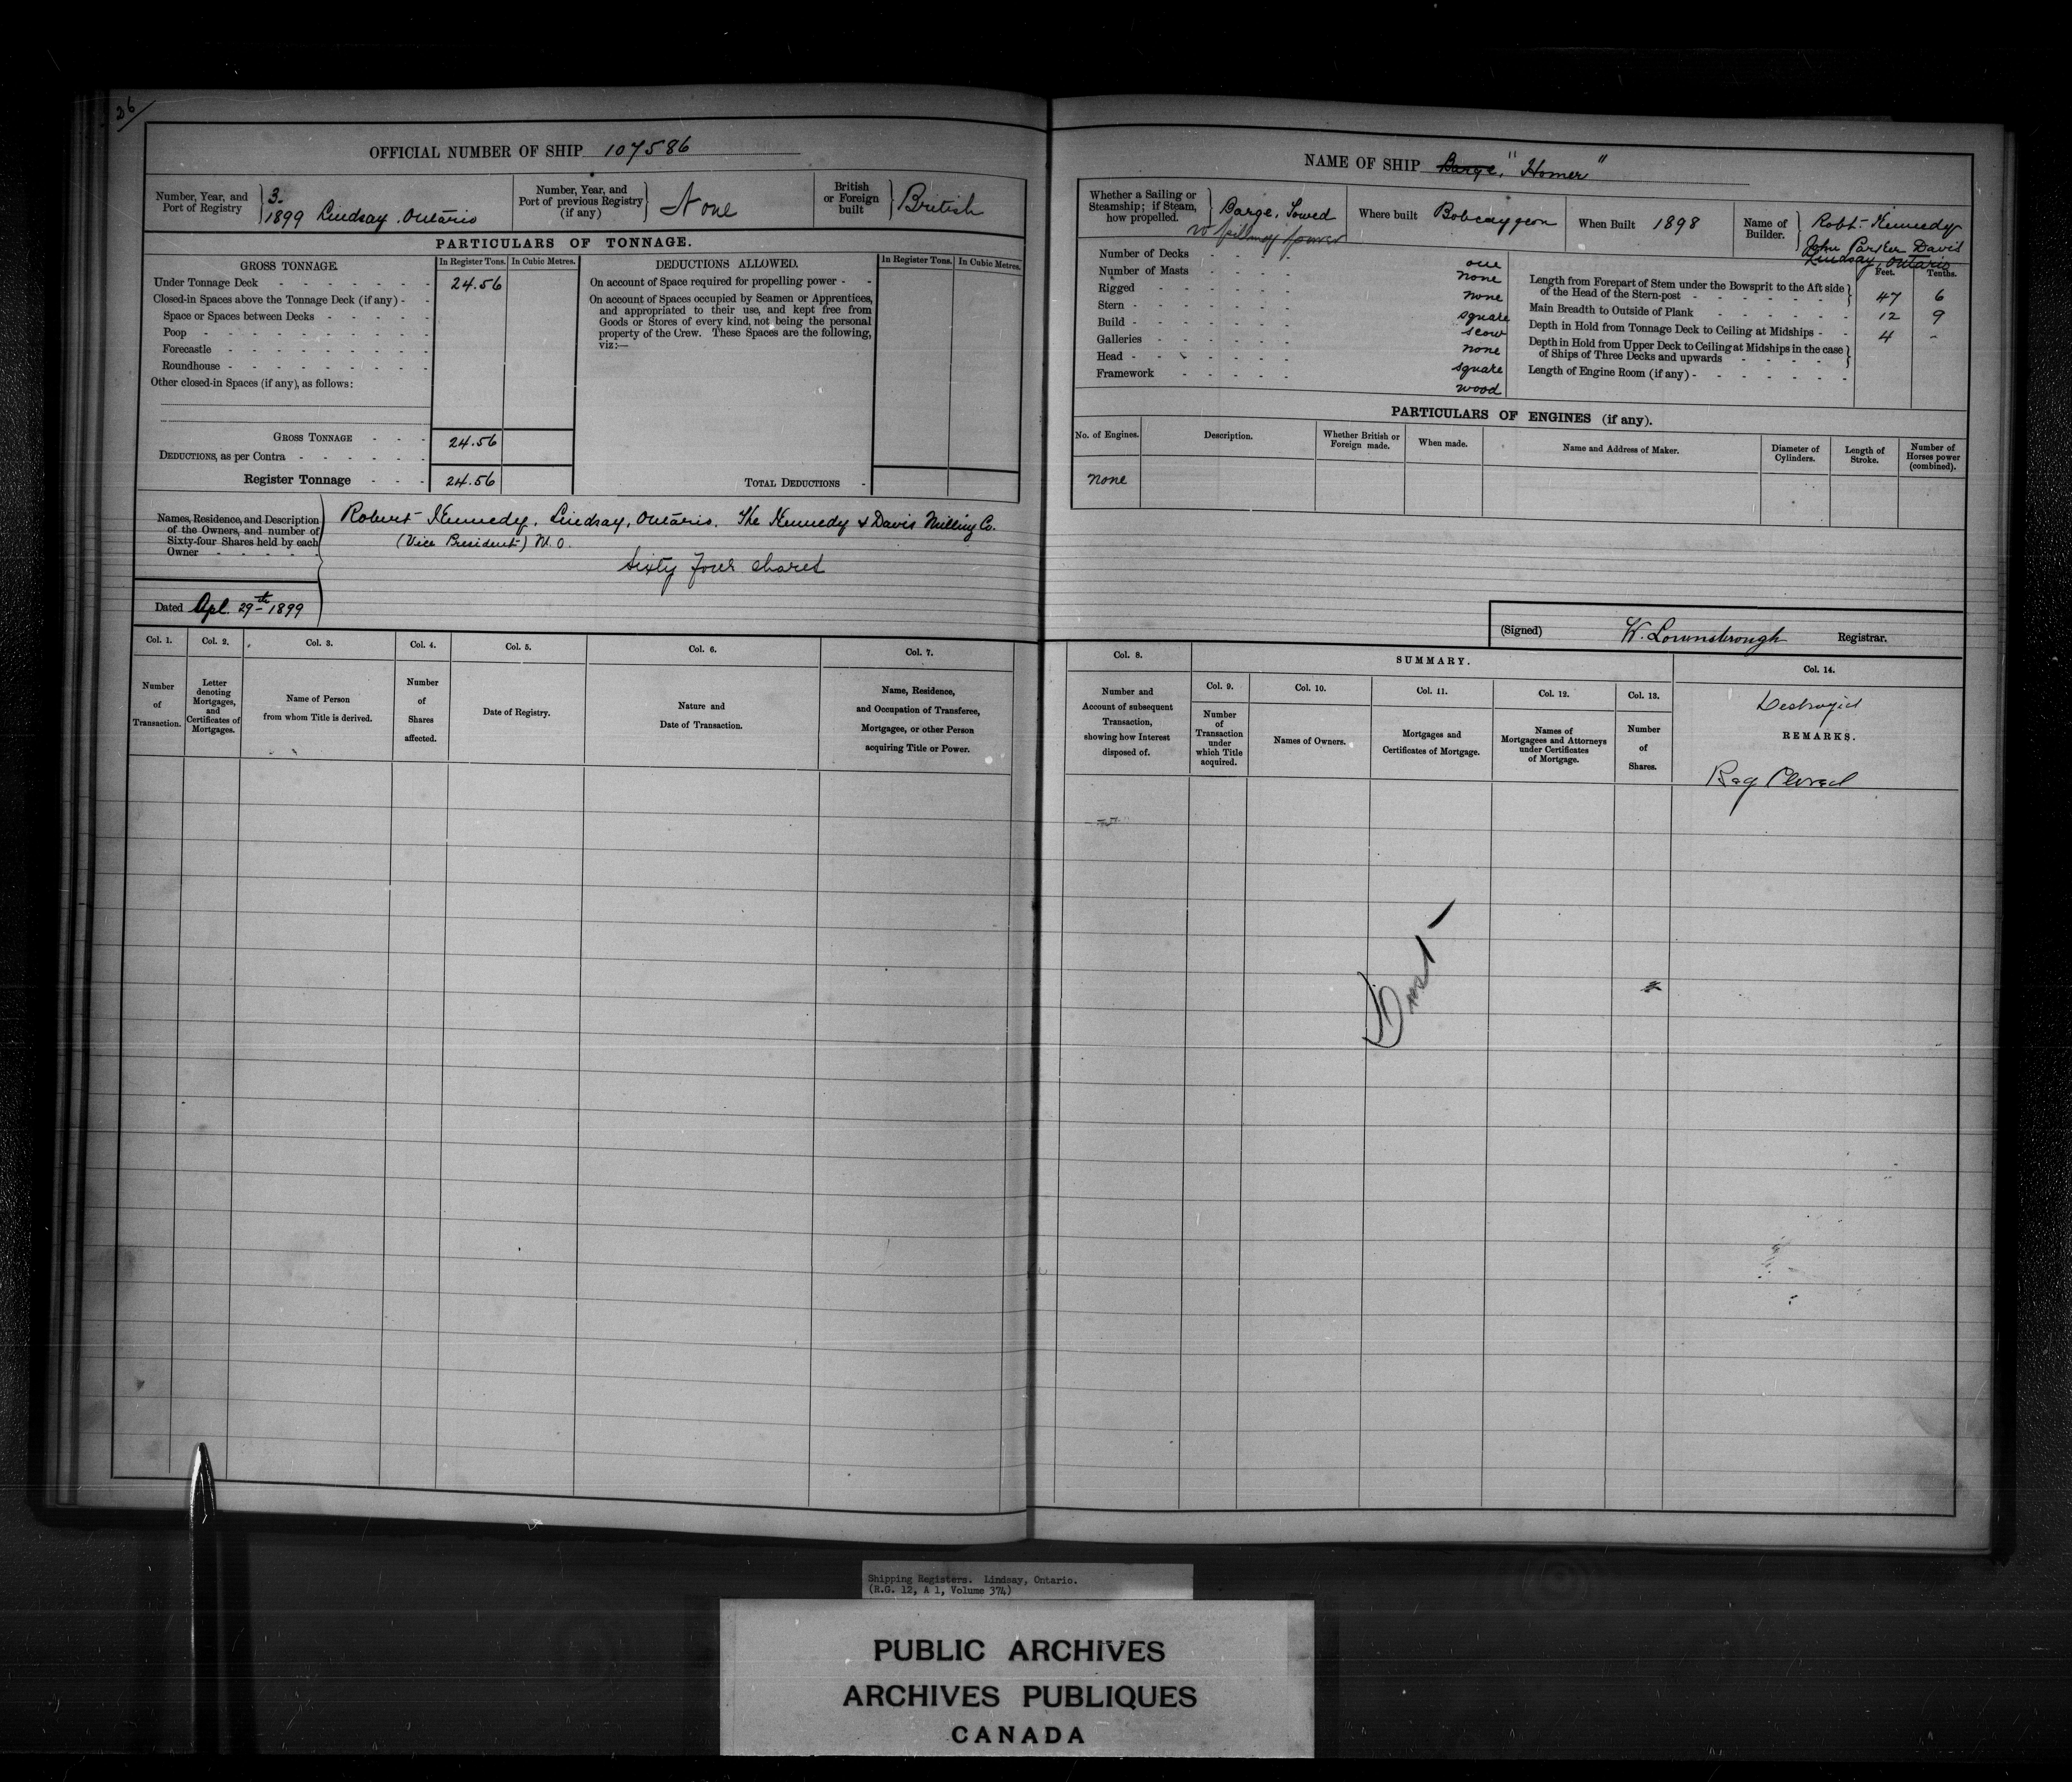 26/
OFFICIAL NUMBER OF SHIP 107586
Number, Year, and Port of Registry
3.
1899 Lindsay. Ontario
Number, Year, and Port of previous Registry (if any)
None
British or Foreign built
British
PARTICULARS OF TONNAGE.
GROSS TONNAGE.
In Register Tons.
In Cubic Metres.
DEDUCTIONS ALLOWED.
In Register Tons.
In Cubic Metres.
Under Tonnage Deck - 24.56
Closed-in Spaces above the Tonnage Deck (if any) -
Space or Spaces between Decks -
Poop -
Forecastle -
Roundhouse -
Other closed-in Spaces (if any), as follows:
On account of Space required for propelling power -
On account of Spaces occupied by Seamen or Apprentices,
and appropriated to their use, and kept free from
Goods or Stores of every kind, not being the personal
property of the Crew. These Spaces are the following,
viz:—
GROSS TONNAGE - 24.56
DEDUCTIONS, as per Contra -
Register Tonnage - 24.56
TOTAL DEDUCTIONS -
Names, Residence, and Description
of the Owners, and number of
Sixty-four Shares held by each
Owner -
Robert Kennedy, Lindsay, Ontario. The Kennedy & Davis Milling Co.
(Vice President) M.O.
Sixty four shares
Dated Apl. 29th 1899
Col. 1.
Number
of
Transaction.
Col. 2.
Letter
denoting
Mortgages,
and
Certificates of
Mortgages.
Col. 3.
Name of Person
from whom Title is derived.
Col. 4.
Number
of
Shares
affected.
Col. 5.
Date of Registry.
Col. 6.
Nature and
Date of Transaction.
Col. 7.
Name, Residence,
and Occupation of Transferee,
Mortgagee, or other Person
acquiring Title or Power.
NAME OF SHIP Barge, "Homer"
Whether a Sailing or
Steamship; if Steam,
how propelled.
Barge, Towed
Where built Bobcaygeon
When Built 1898
Name of Builder.
Robt. Kennedy
John Parker Davis
Lindsay, Ontario
Number of Decks - one
Number of Masts - none
Rigged - none
Stern - square
Build - scow
Galleries - none
Head - square
Framework - wood
Feet. Tenths.
Length from Forepart of Stem under the Bowsprit to the Aft side
of the Head of the Stern-post - 47 6
Main Breadth to Outside of Plank 12 9
Depth in Hold from Tonnage Deck to Ceiling at Midships - 4 -
Depth in Hold from Upper Deck to Ceiling at Midships in the case
of Ships of Three Decks and upwards
Length of Engine Room (if any) -
PARTICULARS OF ENGINES (if any).
No. of Engines.
Description.
Whether British or
Foreign made.
When made.
Name and Address of Maker.
Diameter of
Cylinders.
Length of
Stroke.
Number of
Horses power
(combined).
none
(Signed) W. Lownsbrough Registrar.
Col. 8.
Number and
Account of subsequent
Transaction,
showing how Interest
disposed of.
SUMMARY.
Col. 9.
Number
of
Transaction
under
which Title
acquired.
Col. 10.
Names of Owners.
Col. 11.
Mortgages and
Certificates of Mortgage.
Col. 12.
Names of
Mortgagees and Attorneys
under Certificates
of Mortgage.
Col. 13.
Number
of
Shares.
Col. 14.
Destroyed
REMARKS.
Reg Closed
Shipping Registers. Lindsay, Ontario.
(R.G. 12, A 1, Volume 374)
PUBLIC ARCHIVES
ARCHIVES PUBLIQUES
CANADA